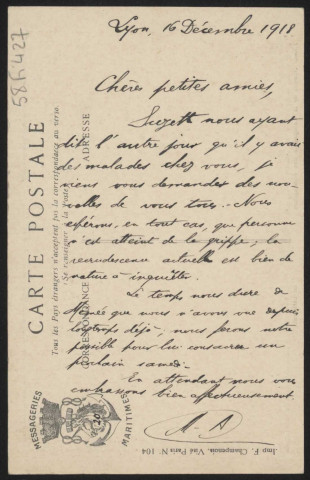 Lyon, 16 Décembre 1918
Chères petites amies,
Suzette nous ayant
dit l'autre jour qu'il y avait
des malades chez vous, je
viens vous demander des nou-
velles de vous tous. Nous
espérons, en tout cas, que personne
n'est atteint de la grippe; la
recrudescence actuelle est bien de
nature à inquiéter.
Le temps nous dure de
que nous n'avons vue depuis
longtemps déjà, nous ferons notre
possible pour lui consacrer un
prochain samedi.
En attendant nous vous
embrassons bien affectueusement
M-A
58Fi427
CARTE POSTALE
Tous les Pays étrangers n'acceptent pas la correspondance au verso
Se renseigner à la Poste
CORRESPONDANCE
ADRESSE
MESSAGERIES
MARITIMES
Imp. F. Champenois, Vind Paris N° 104